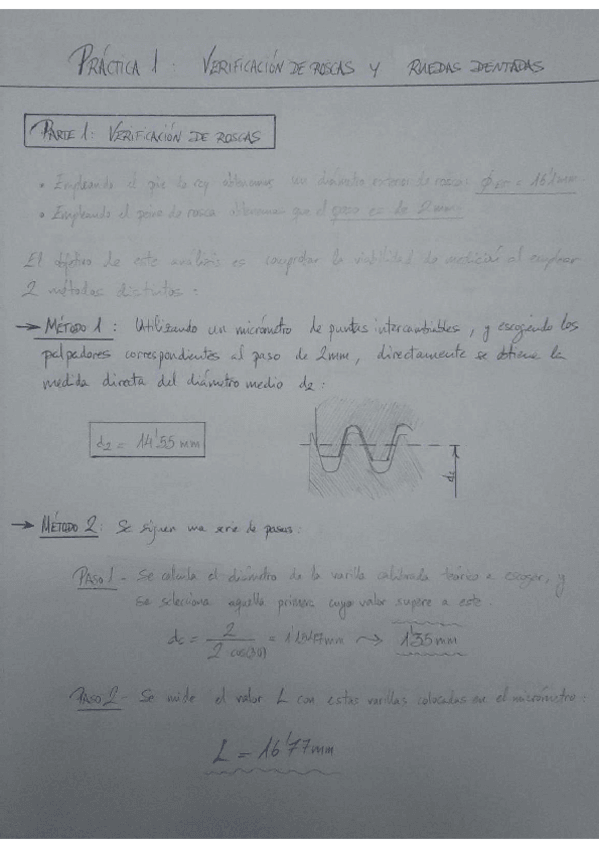 PRÁCTICA 1: VERIFICACIÓN DE ROSCAS Y RUEDAS DENTADAS
PARTE 1: VERIFICACIÓN DE ROSCAS
• Empleando el pie de rey obtenemos un diámetro exterior de rosca: ϕext = 16'1mm
• Empleando el peine de rosca obtenemos que el paso es de 2mm.
El objetivo de este análisis es comprobar la viabilidad de medición al emplear
2 métodos distintos:
→ MÉTODO 1: Utilizando un micrómetro de puntas intercambiables, y escogiendo los
palpadores correspondientes al paso de 2mm, directamente se obtiene la
medida directa del diámetro medio d2:
d2 = 14'55 mm
d2
→ MÉTODO 2: Se siguen una serie de pasos:
PASO 1 - Se calcula el diámetro de la varilla calibrada teórico a escoger, y
se selecciona aquella primera cuyo valor supere a este.
dc = 2 / 2 cos(30) = 1'1547mm ⇝ 1'35mm
PASO 2 - Se mide el valor L con estas varillas colocadas en el micrómetro:
L = 16'77mm